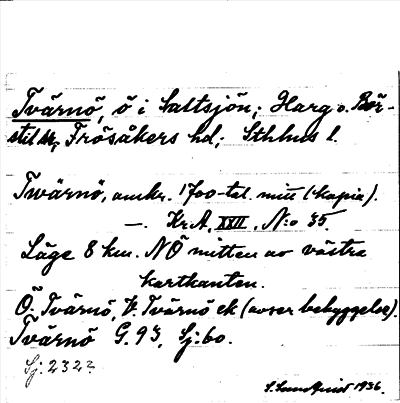 Tvärnö, ö i Saltsjön; Harg o. Bör-
stil sk, Frösåkers hd; Sthlms l.
Twärnö, omkr. 1700-tal. mitt (kopia).
—. Kr.A. XXII, N:o 35.
Läge 8 km. NÖ mitten av västra
kartkanten.
Ö. Tvärnö, V. Tvärnö ek (avser bebyggelse).
Tvärnö G. 93, Sj: 60.
Sj. 232?
S. Sundquist 1936.